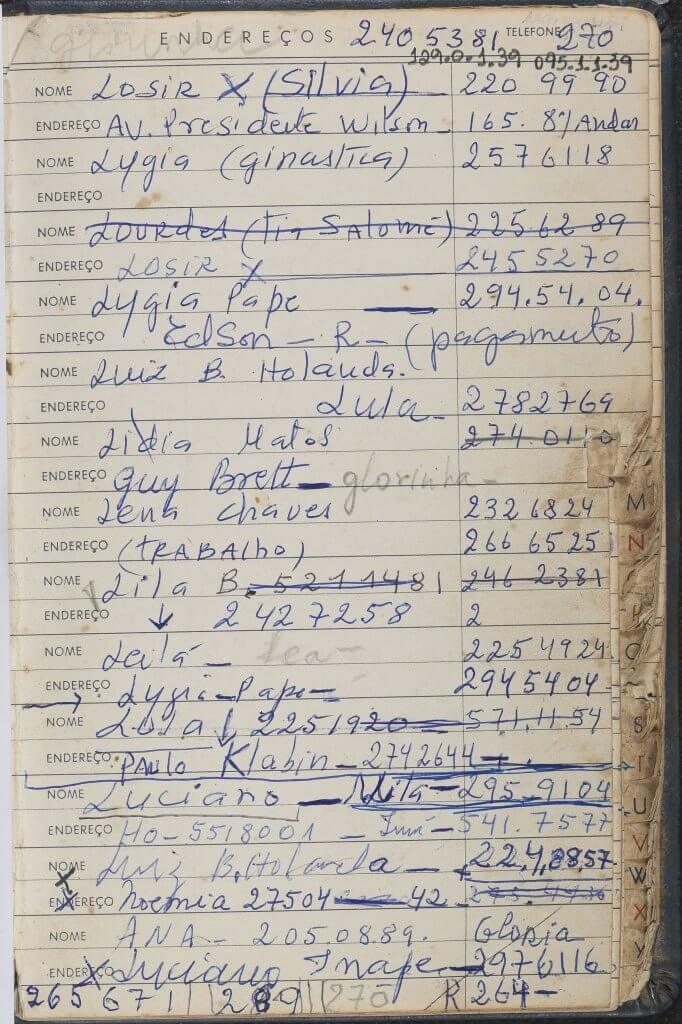 ENDEREÇOS 240 5381 TELEFONE 270
129.0.1.39 095.1.1.39
NOME LOSIR X (Silvia) 220 99 90
ENDEREÇO Av. Presidente Wilson - 165. 8º/Andar
NOME Lygia (ginastica) 2576118
ENDEREÇO
NOME Lourdes (Tia Salomé) 225 62 89
ENDEREÇO LOSIR X 2455270
NOME Lygia Pape — 294.54.04.
ENDEREÇO Edson - R - (pagamento)
NOME Luiz B. Holanda.
ENDEREÇO Lula - 2782769
NOME Lidia Matos 274.0110
ENDEREÇO Guy Brett - glorinha -
NOME Lena Chaves 232 6824
ENDEREÇO (TRABALho) 266 6525
NOME Lila B. 5211481 246 2381
ENDEREÇO ↓ 2427258 2
NOME Leilá - lea - 225 4924
ENDEREÇO → Lygia Pape - 2945404
NOME Lula ↓ 2251920 571.11.54
ENDEREÇO PAULO Klabin - 2742644
NOME Luciano - Mila - 295-9104
ENDEREÇO Ho - 5518001 - 541.7577
NOME Luiz B. Holanda - 224,8857
ENDEREÇO X Noemia 27504 42
NOME ANA - 205.08.89. Gloria
ENDEREÇO X Luciano Inape - 2976116
265 671 289 270 R 264 -
M
N
P
Q
S
T
U
V
W
X
Y